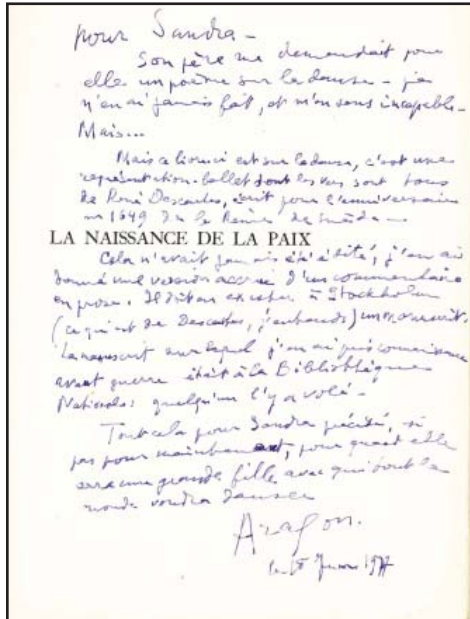 pour Sandra -
Son père me demandait pour
elle un poème sur la danse - je
n'en ai jamais fait, et m'en sens incapable -
Mais...
Mais ce livre-ci est sur la danse, c'est une
représentation-ballet dont les vers sont tous
de René Descartes, écrit pour l'anniversaire
en 1649 de la Reine de Suède -
LA NAISSANCE DE LA PAIX
Cela n'avait jamais été édité, j'en ai
donné une version accrue d'un commentaire
en prose. Il doit en exister à Stockholm
(ce qui est de Descartes, j'entends) un manuscrit.
Le manuscrit sur lequel j'en ai pris connaissance
avant guerre était à la Bibliothèque
Nationale: quelqu'un l'y a volé -
Tout cela pour Sandra précité, si
pas pour maintenant, pour quand elle
sera une grande fille avec qui tout le
monde voudra danser
Aragon.
1977